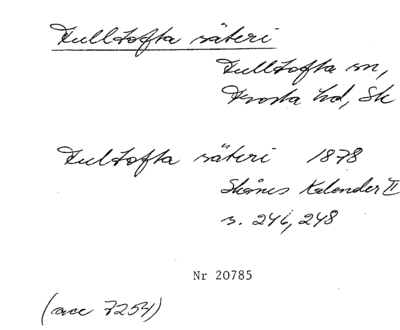 Fulltofta säteri
Fulltofta sn,
Frosta hd, Sk
Fultofta säteri 1878
Skånes Kalender II
s. 246, 248
Nr 20785
(acc 7254)